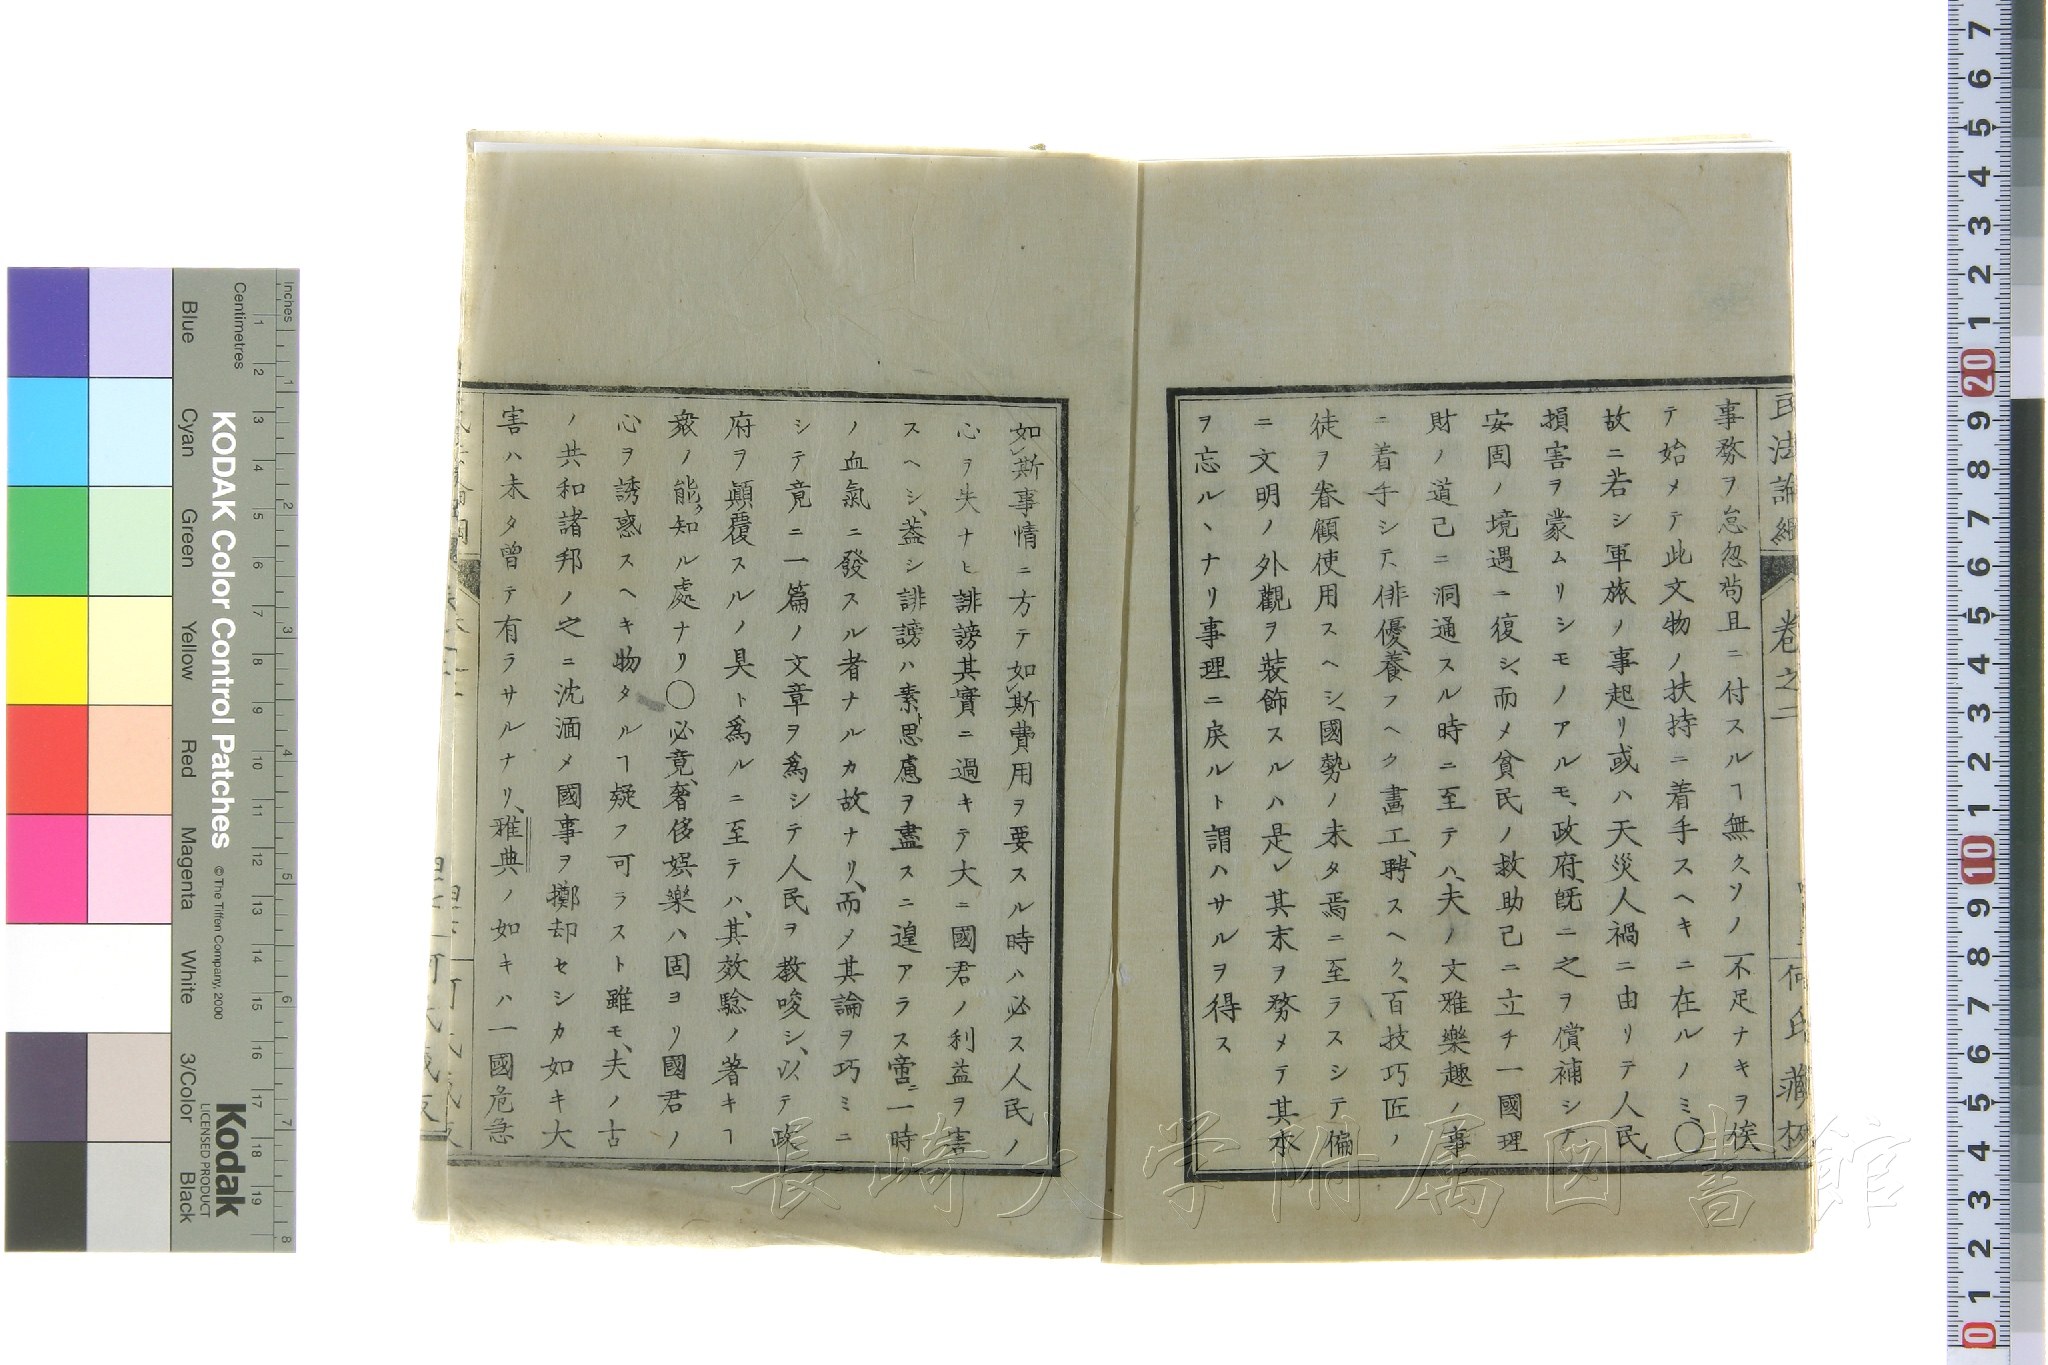 民法論綱 卷之二 何氏藏板
事務ヲ怠忽苟且ニ付スルヿ無クソノ不足ナキヲ俟
テ始メテ此文物ノ扶持ニ着手スヘキニ在ルノミ〇
故ニ若シ軍旅ノ事起リ或ハ天災人禍ニ由リテ人民、
損害ヲ蒙ムリシモノアルモ、政府、旣ニ之ヲ償補シテ
安固ノ境遇ニ復シ、而メ貧民ノ救助已ニ立チ一國理
財ノ道已ニ洞通スル時ニ至テハ、夫ノ文雅樂趣ノ事
ニ着手シテ、俳優、養フヘク畵工、聘スヘク、百技巧匠ノ
徒ヲ眷顧使用スヘシ、國勢ノ未タ焉ニ至ラスシテ偏
ニ文明ノ外觀ヲ裝飾スルハ是レ其末ヲ務メテ其本
ヲ忘ルヽナリ事理ニ戾ルト謂ハサルヲ得ス
如斯事情ニ方テ如斯費用ヲ要スル時ハ必ス人民ノ
心ヲ失ナヒ誹謗其實ニ過キテ大ニ國君ノ利益ヲ害
スヘシ、蓋シ誹謗ハ素ト思慮ヲ盡スニ遑アラス啻ニ一時
ノ血氣ニ發スル者ナルカ故ナリ、而メ其論ヲ巧ミニ
シテ竟ニ一篇ノ文章ヲ爲シテ人民ヲ敎唆シ、以テ政
府ヲ顚覆スルノ具ト爲ルニ至テハ、其效驗ノ著キヿ
衆ノ能ク知ル處ナリ〇必竟、奢侈娯樂ハ固ヨリ國君ノ
心ヲ誘惑スヘキ物タルヿ疑フ可ラスト雖モ、夫ノ古
ノ共和諸邦ノ之ニ沈湎メ國事ヲ擲却セシカ如キ大
害ハ未タ曾テ有ラサルナリ、雅典ノ如キハ一國危急
Inches
Centimetres
KODAK Color Control Patches
© The Tiffen Company, 2000
Blue Cyan Green Yellow Red Magenta White 3/Color Black
Kodak
LICENSED PRODUCT
長崎大学附属図書館